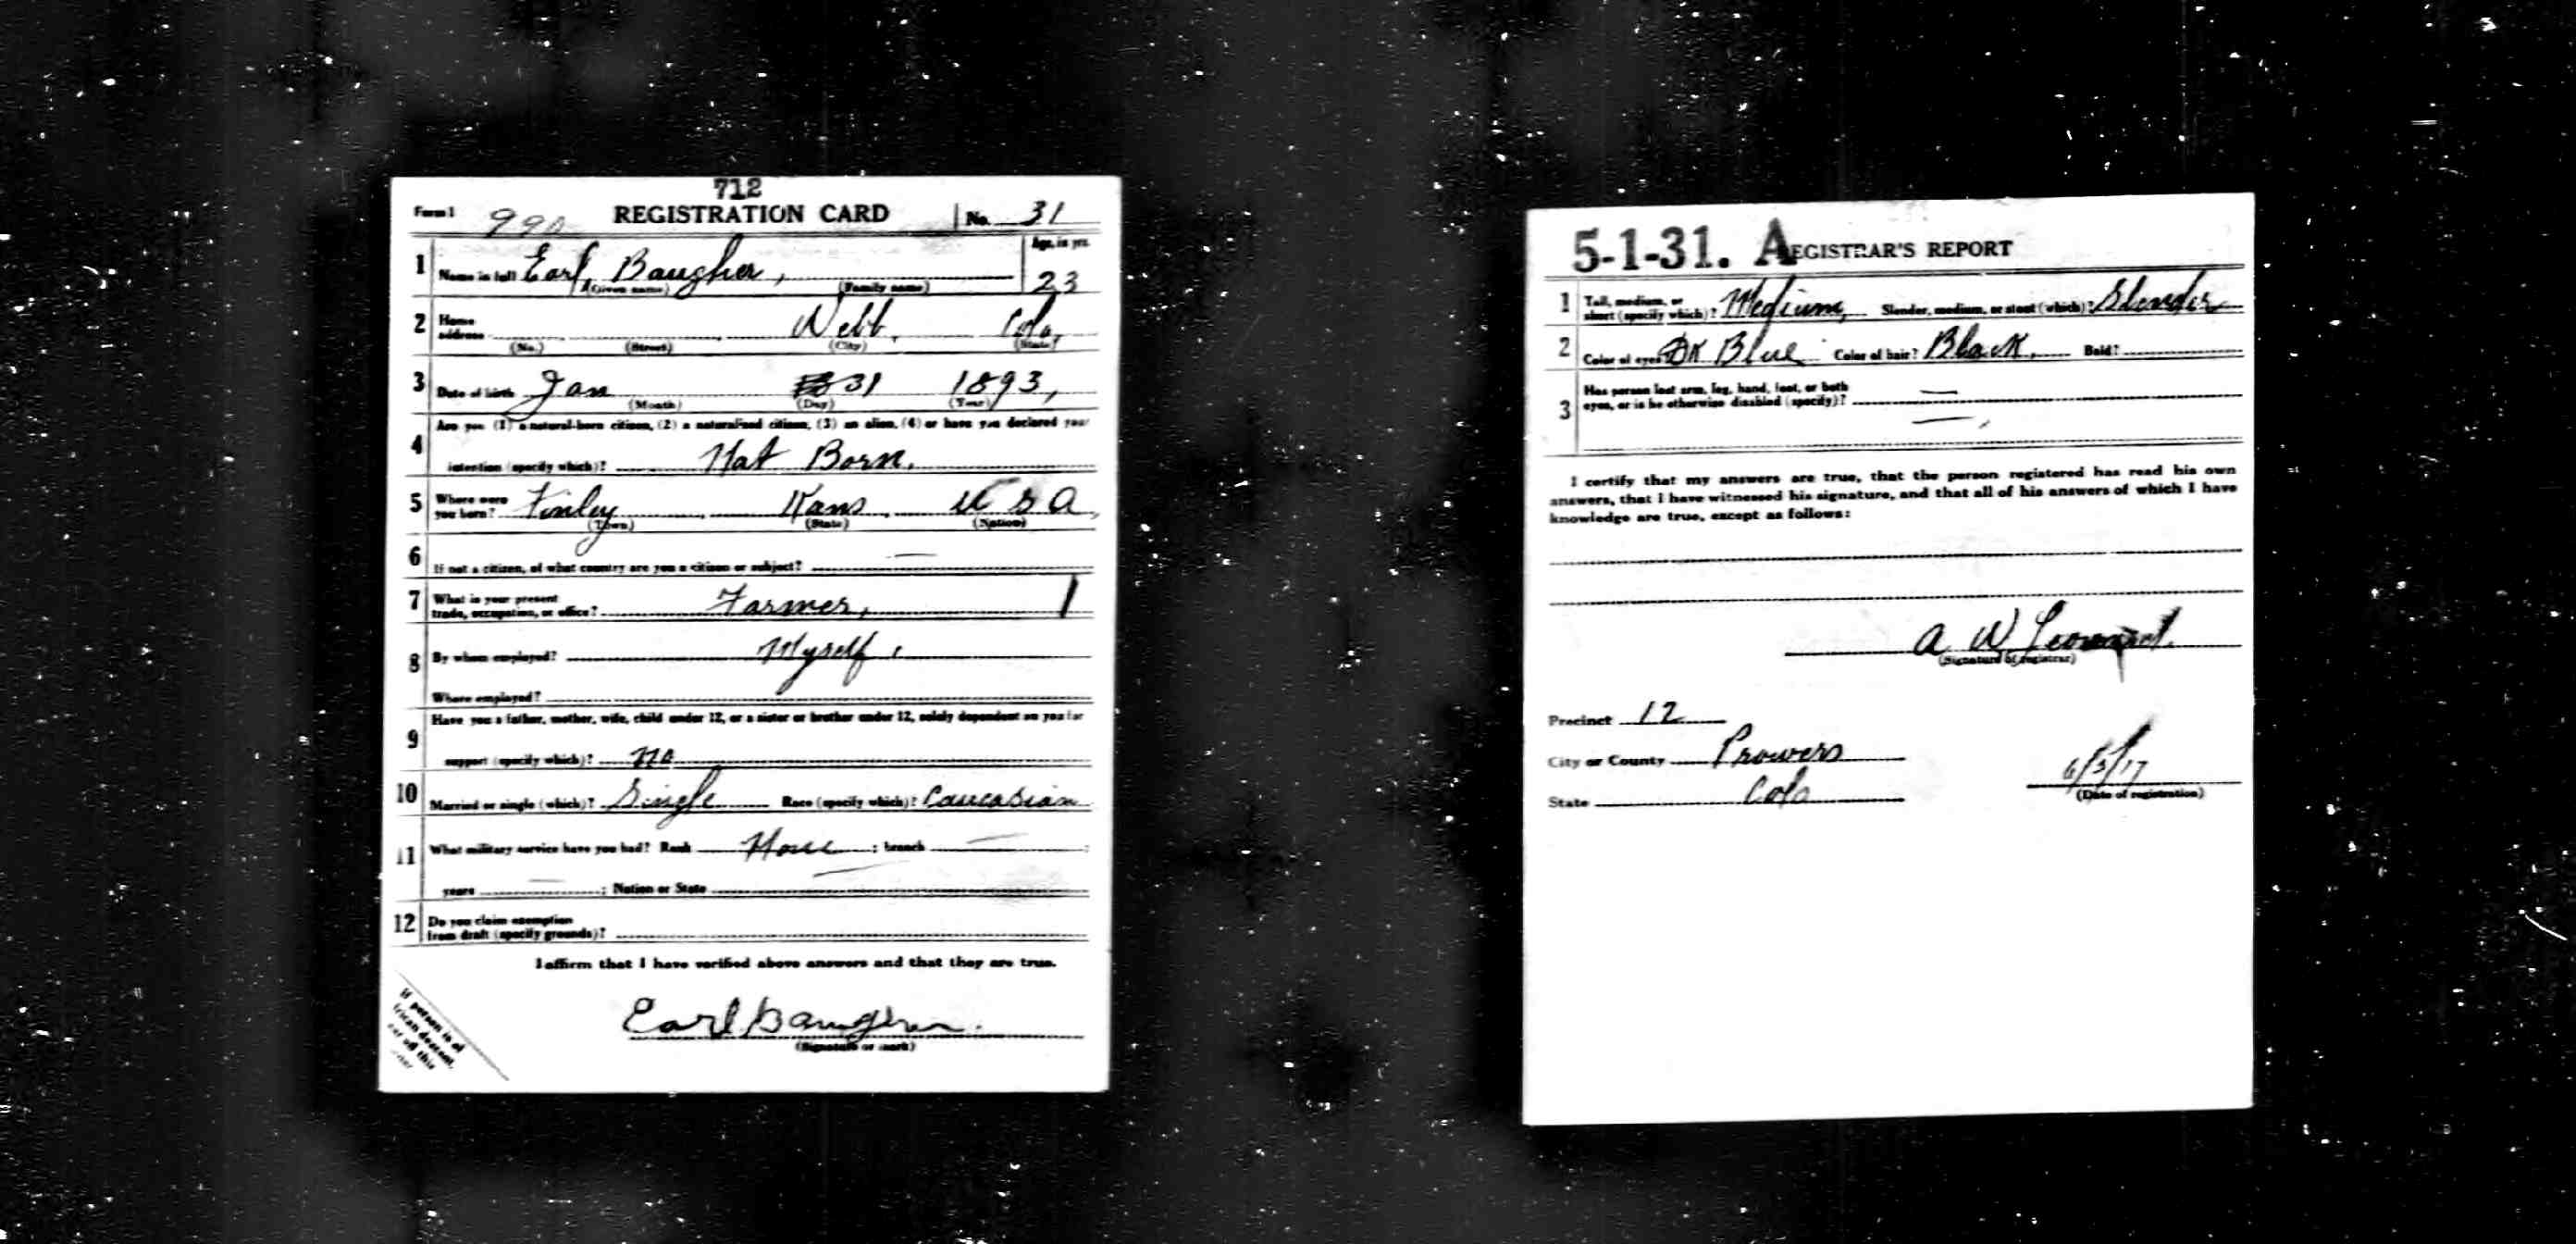 712
Form 1 990 REGISTRATION CARD No. 31
1 Name in full Earl Baugher, Age, in yrs.
(Given name) (Family name) 23
2 Home address Webb, Colo,
(No.) (Street) (City) (State)
3 Date of birth Jan 31 1893,
(Month) (Day) (Year)
4 Are you (1) a natural-born citizen, (2) a naturalized citizen, (3) an alien, (4) or have you declared your
intention (specify which)? Nat Born.
5 Where were you born? Finley, Kans, U S A,
(Town) (State) (Nation)
6 If not a citizen, of what country are you a citizen or subject? —
7 What is your present trade, occupation, or office? Farmer, 1
8 By whom employed? Myself,
Where employed?
9 Have you a father, mother, wife, child under 12, or a sister or brother under 12, solely dependent on you for
support (specify which)? No
10 Married or single (which)? Single Race (specify which)? Caucasian
11 What military service have you had? Rank None ; branch — ;
years — ; Nation or State —
12 Do you claim exemption from draft (specify grounds)?
I affirm that I have verified above answers and that they are true.
Earl Baugher.
(Signature or mark)
If person is of
African descent,
tear off this
corner
5-1-31. A REGISTRAR'S REPORT
1 Tall, medium, or short (specify which)? Medium, Slender, medium, or stout (which)? Slender
2 Color of eyes? DK Blue Color of hair? Black, Bald?
3 Has person lost arm, leg, hand, foot, or both
eyes, or is he otherwise disabled (specify)? —
—,
I certify that my answers are true, that the person registered has read his own
answers, that I have witnessed his signature, and that all of his answers of which I have
knowledge are true, except as follows:
A W Leonard.
(Signature of registrar)
Precinct 12
City or County Prowers
State Colo
6/5/17
(Date of registration)